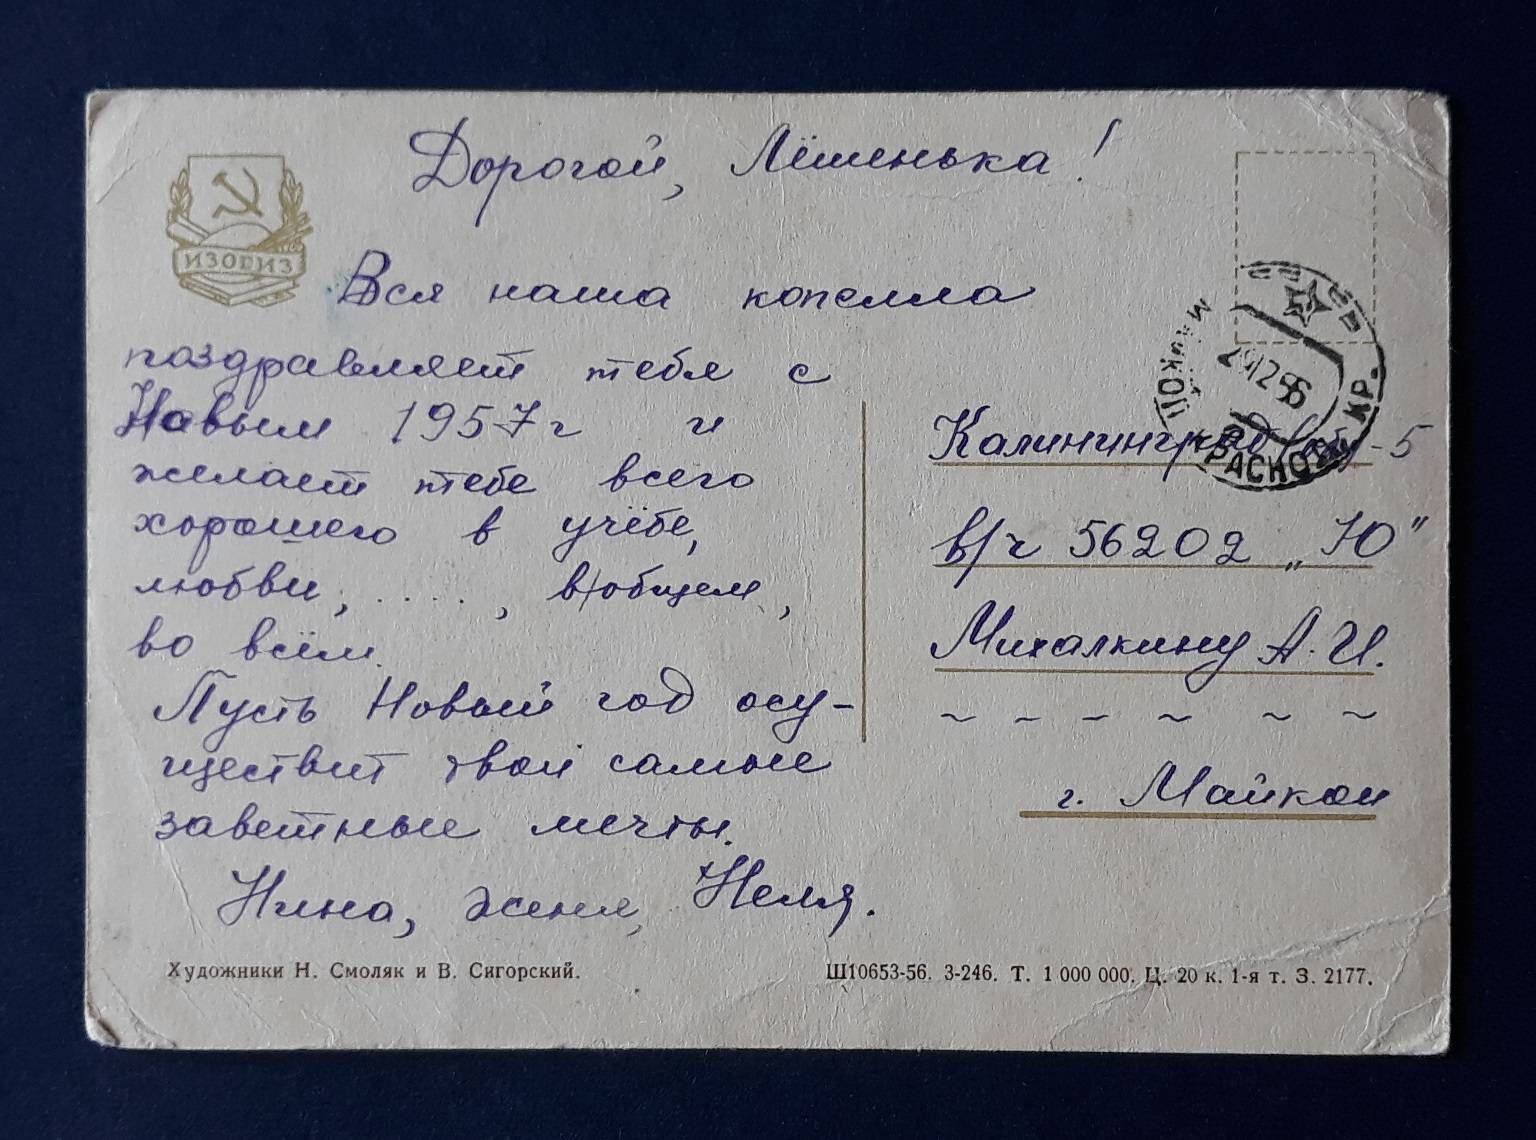 Дорогой, Лёшенька!
ИЗОГИЗ
Вся наша копелла
поздравляет тебя с
Новым 1957г и
желает тебе всего
хорошего в учёбе,
любви, ...., в/общем,
во всём.
Пусть Новый год осу-
ществит твои самые
заветные мечты.
Нина, Женя, Неля.
СССР
МАЙКОП КРАСНОД. КР.
56
Калининград -5
в/ч 56202 „Ю"
Михалкину А.И.
~ ~ ~ ~ ~ ~
г. Майкоп
Художники Н. Смоляк и В. Сигорский.
Ш10653-56. 3-246. Т. 1 000 000. Ц. 20 к. 1-я т. З. 2177.